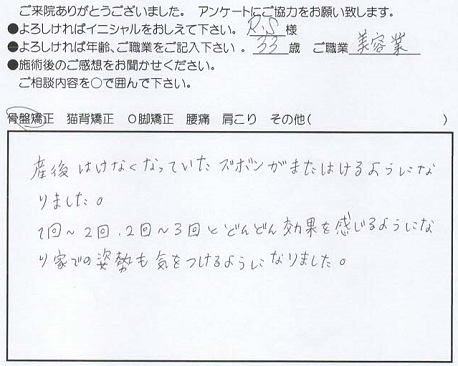 ご来院ありがとうございました。 アンケートにご協力をお願い致します。
●よろしければイニシャルをおしえて下さい。 R.S 様
●よろしければ年齢、ご職業をご記入下さい。 33 歳 ご職業 美容業
●施術後のご感想をお聞かせください。
ご相談内容を○で囲んで下さい。
骨盤矯正 猫背矯正 O脚矯正 腰痛 肩こり その他( )
産後はけなくなっていたズボンがまたはけるようにな
りました。
1回～2回、2回～3回とどんどん効果を感じるようにな
り家での姿勢も気をつけるようになりました。